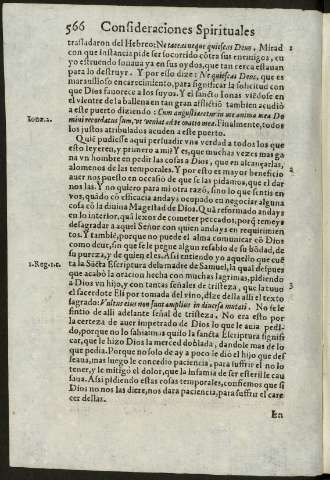 566 Consideraciones Spirituales
trasladaron del Hebreo: Ne taceas neque quiescas Deus, Mirad
con que instancia pide ser socorrido cõtra sus enemigos, cu
yo estruendo sonaua ya en sus oydos, que tan cerca estauan
para lo destruyr. Y por esso dize: Ne quiescas Deus, que es
marauilloso encarecimiento, para significar la solicitud con
que Dios fauorece a los suyos. Y el sancto Ionas viẽdose en
el vientre de la ballena en tan gran afflictiõ tambien acudio
a este puerto diziendo: Cum angustiaretur in me anima mea Do
mini recordatus sum, vt veniat ad te oratio mea. Finalmente, todos
los justos atribulados acuden a este puerto.
Quiẽ pudiesse aqui persuadir vna verdad a todos los que
esto leyeren, y primero a mi? Y es, que muchas vezes mas ga
na vn hombre en pedir las cosas a Dios, que en alcançarlas,
alomenos de las temporales. Y por esto es mayor beneficio
auer nos puesto en occasiõ de que se las pidamos, que el dar
nos las. Y no quiero para mi otra razõ, sino lo que sentis en
vos, quãdo cõ efficacia andays ocupado en negociar alguna
cosa cõ la diuina Magestad de Dios. Quã reformado andays
en lo interior, quã lexos de cometer peccados, porq̃ temeys
desagradar a aquel Señor con quien andays en requirimien
tos. Y tambiẽ, porque no puede el alma comunicar cõ Dios
como deue, sin que se le pegue algun resabio de su bõdad, de
su pureza, y de quien el es. Assi entiendo yo aquello que cuẽ
ta la Sãcta Escriptura de la madre de Samuel, la qual despues
que acabò la oracion hecha con muchas lagrimas, pidiendo
a Dios vn hijo, y con tantas señales de tristeza, que la tuuo
el sacerdote Eli por tomada del vino, dize della alli el texto
sagrado: Vultus eius non sunt amplius in diuersa mutati. No se le
sintio de alli adelante señal de tristeza. No era esto por
la certeza de auer impetrado de Dios lo que le auia pedi-
do, porque no lo sabia: mas quiso la sancta Escriptura signifi
car, que le hizo Dios la merced doblada, dandole mas de lo
que pedia. Porque no solo de ay a poco le diò el hijo que des
seaua, mas luego le concedio paciencia, para suffrir el no lo
tener, y le mitigò el dolor, que la infamia de ser esteril le cau
saua. Assi pidiendo estas cosas temporales, confiemos que si
Dios no nos las diere, nos dara paciencia, para suffrir el care
cer dellas.
En
Ionæ.2.
1.Reg.1.c.
1
2
3